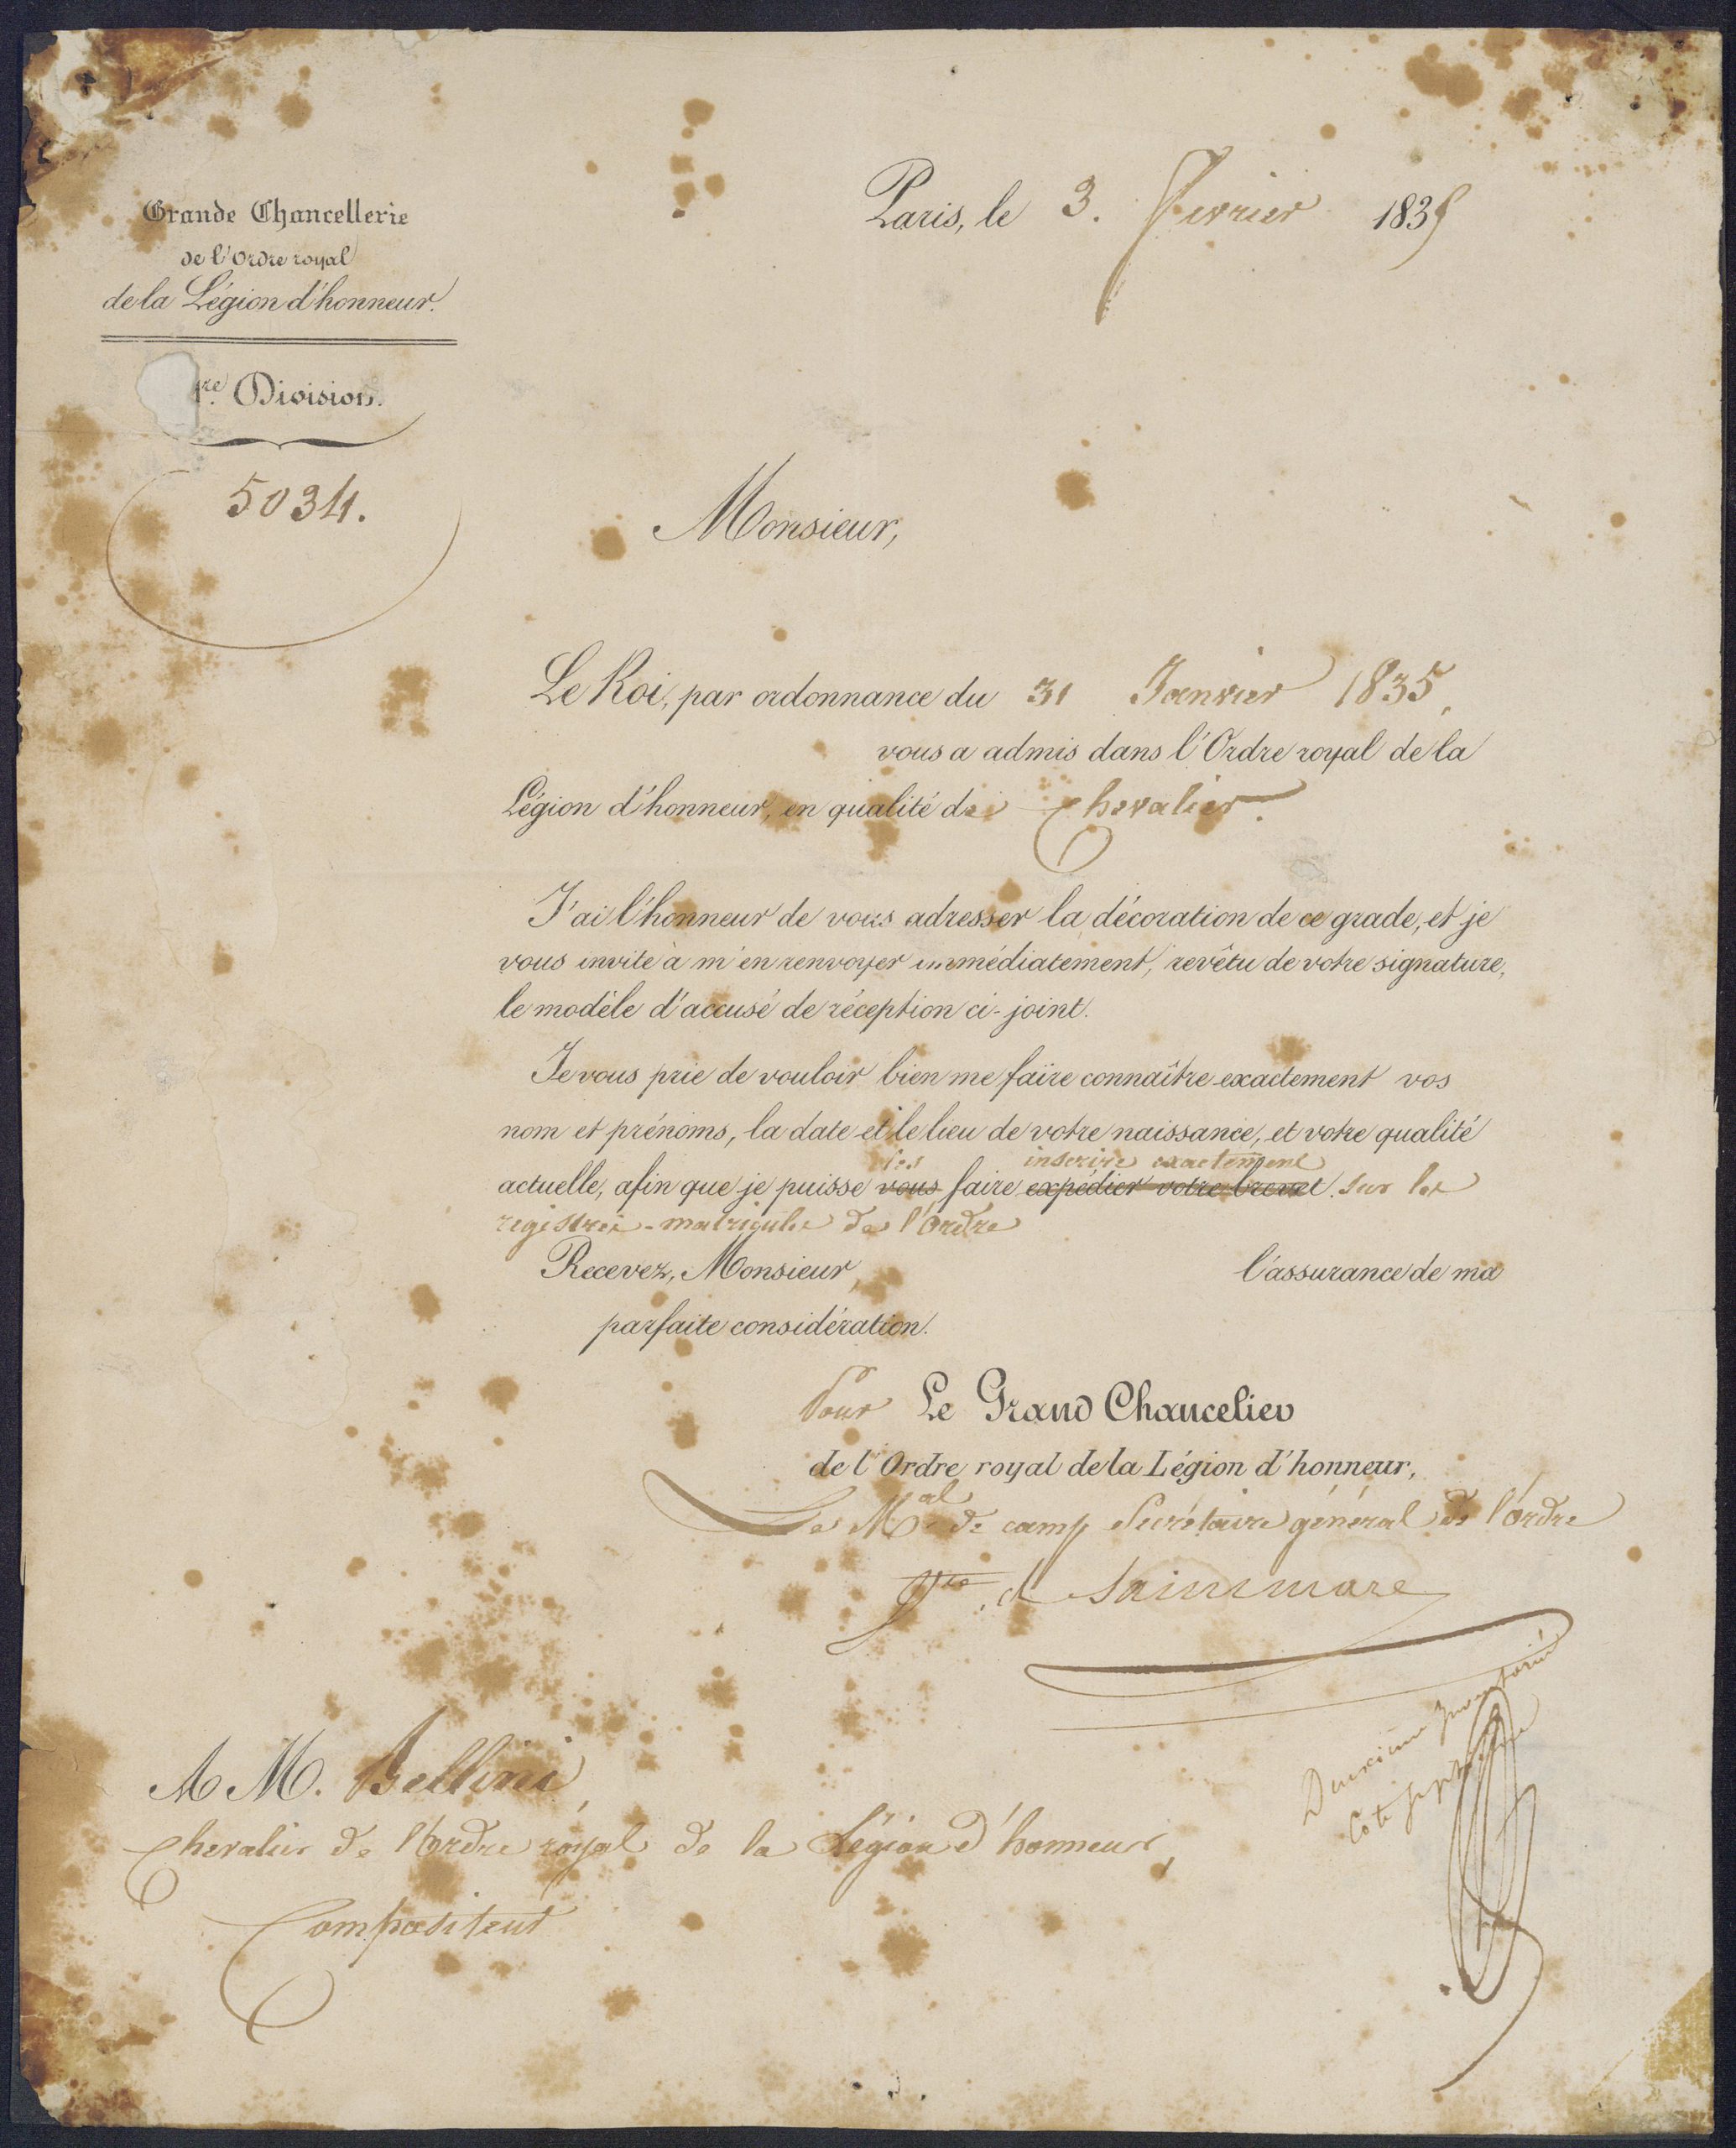 Grande Chancellerie
de l'Ordre royal
de la Légion d'honneur.
1re Division.
5034.
Paris, le 3. fevrier 1835
Monsieur,
Le Roi, par ordonnance du 31 Janvier 1835,
vous a admis dans l'Ordre royal de la
Légion d'honneur, en qualité de Chevalier.
J'ai l'honneur de vous adresser la décoration de ce grade, et je
vous invite à m'en renvoyer immédiatement, revêtu de votre signature,
le modèle d'accusé de réception ci-joint.
Je vous prie de vouloir bien me faire connaître exactement vos
nom et prénoms, la date et le lieu de votre naissance, et votre qualité
les inscrire exactement
actuelle, afin que je puisse vous faire expédier votre brevet. sur les
registres-matricules de l'Ordre
Recevez, Monsieur, l'assurance de ma
parfaite considération.
Pour Le Grand Chancelier
de l'Ordre royal de la Légion d'honneur,
Le Mal de camp Secrétaire général de l'ordre
Vte de Saintmare
A M. Bellini,
Chevalier de l'Ordre royal de la Légion d'honneur,
Compositeur